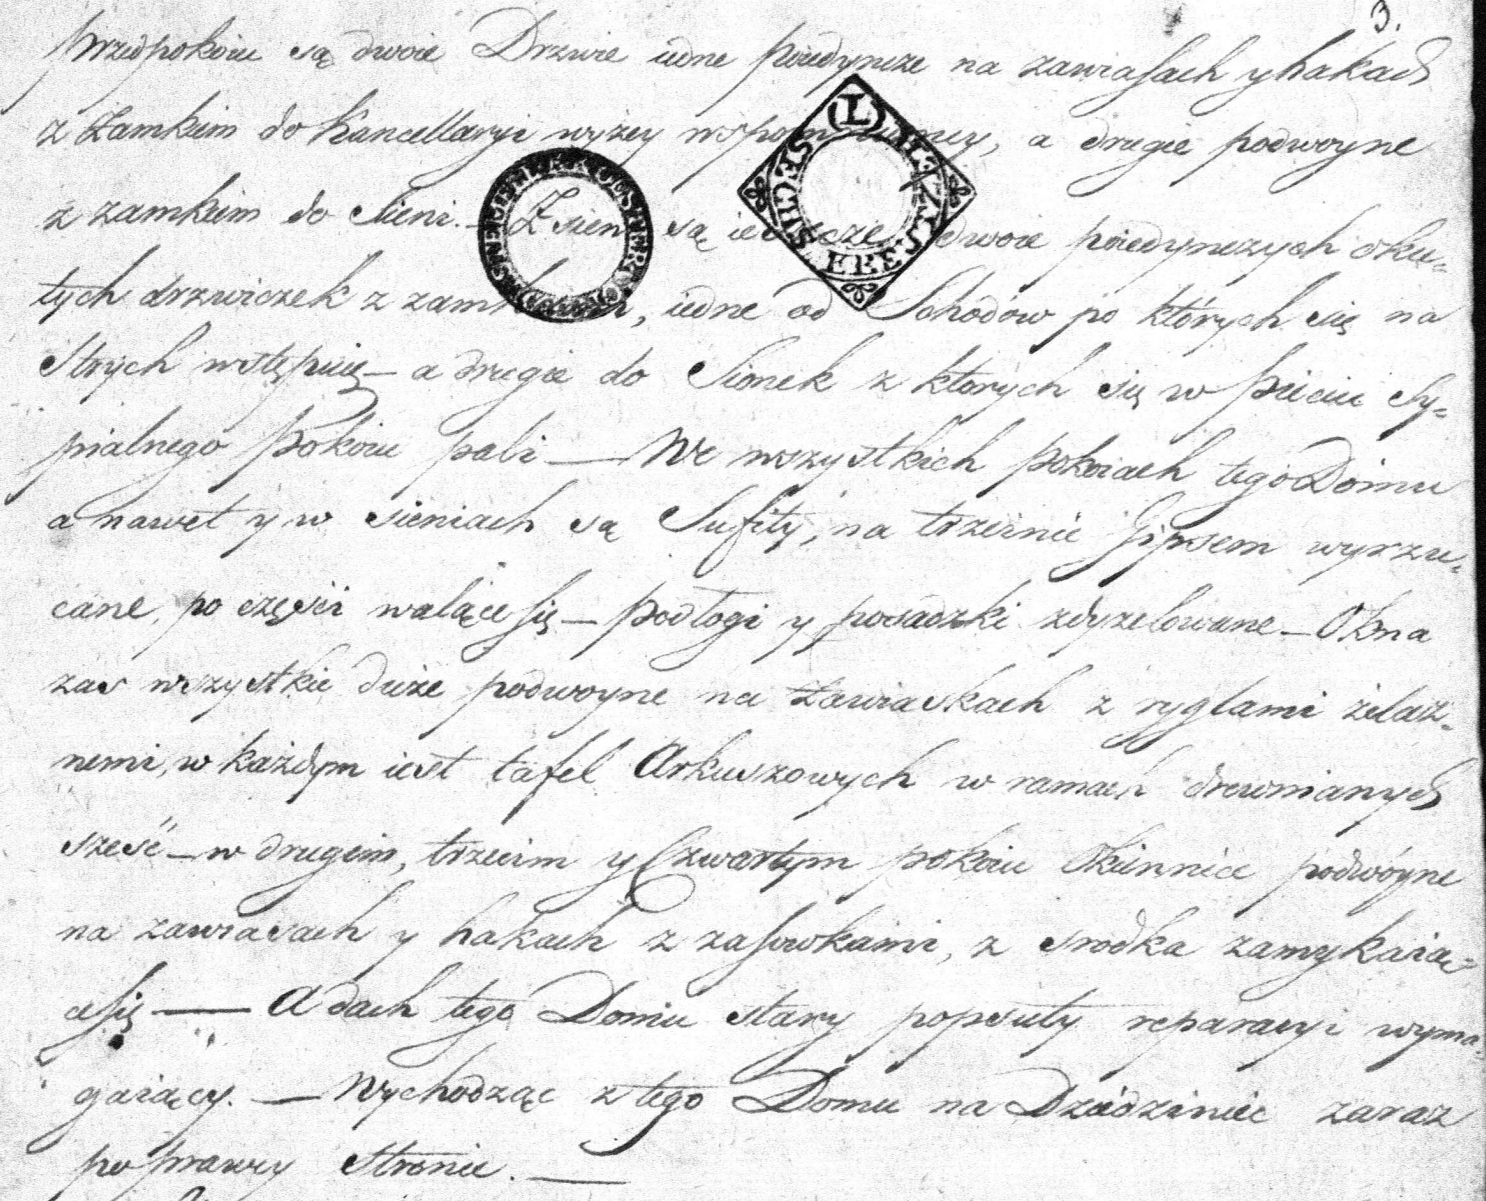 3.
przedpokoiu są dwoie Drzwie iedne poiedyncze na zawiasach y hakach
z zamkiem do Kancellaryi wyzey wspomnioney, a drugie podwoyne
z zamkiem do Sieni. – Z sieni są ieszcze dwoie poiedynczych oku-
tych drzwiczek z zamkiem, iedne od Schodów po których się na
Strych wstępuię – a drugie do Sionek z ktorych się w piecu Sy-
pialnego Pokoiu pali — We wszystkich pokoiach tego Domu
a nawet y w sieniach są Sufity, na trzcinie Gipsem wyrzu-
cane, po części walącesię – Podłogi y posadzki zdyzelowane – Okna
zas wszystkie duże podwoyne na zawiaskach z ryglami żelaz-
nemi, w każdym iest tafel Arkuszowych w ramach drewnianych
sześć – w drugim, trzecim y Czwartym pokoiu Okiennice podwóyne
na zawiasach y hakach z zasuwkami, z srodka zamykaią-
cesię — A dach tego Domu stary popsuty reparacyi wyma-
gaiący. — Wychodząc z tego Domu na Dziedziniec zaraz
po prawey Stronie. —